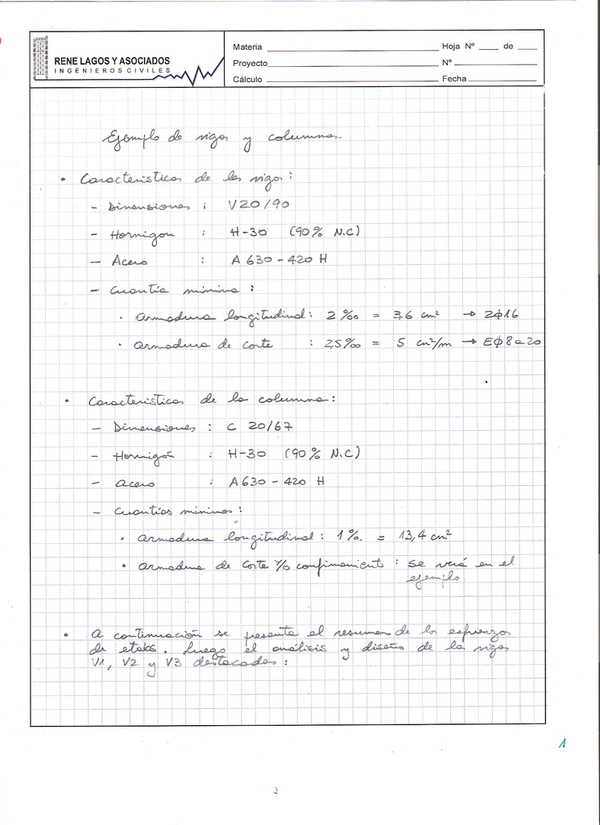 RENE LAGOS Y ASOCIADOS
INGENIEROS CIVILES
Materia
Hoja Nº ___ de ___
Proyecto
Nº
Cálculo
Fecha
Ejemplo de vigas y columnas.
• Características de las vigas:
- Dimensiones : V20/90
- Hormigón : H-30 (90% N.C)
- Acero : A 630-420 H
- Cuantía mínima :
· Armadura longitudinal: 2‰ = 3,6 cm² → 2φ16
· Armadura de corte : 2,5‰ = 5 cm²/m → Eφ8a20
• Características de la columna:
- Dimensiones : C 20/67
- Hormigón : H-30 (90% N.C)
- Acero : A630-420 H
- Cuantías mínimas :
· Armadura longitudinal: 1%. = 13,4 cm²
• Armadura de corte y/o confinamiento : se verá en el
ejemplo
• A continuación se presenta el resumen de los esfuerzos
de etabs. Luego el análisis y diseño de la vigas
V1, V2 y V3 destacadas:
1